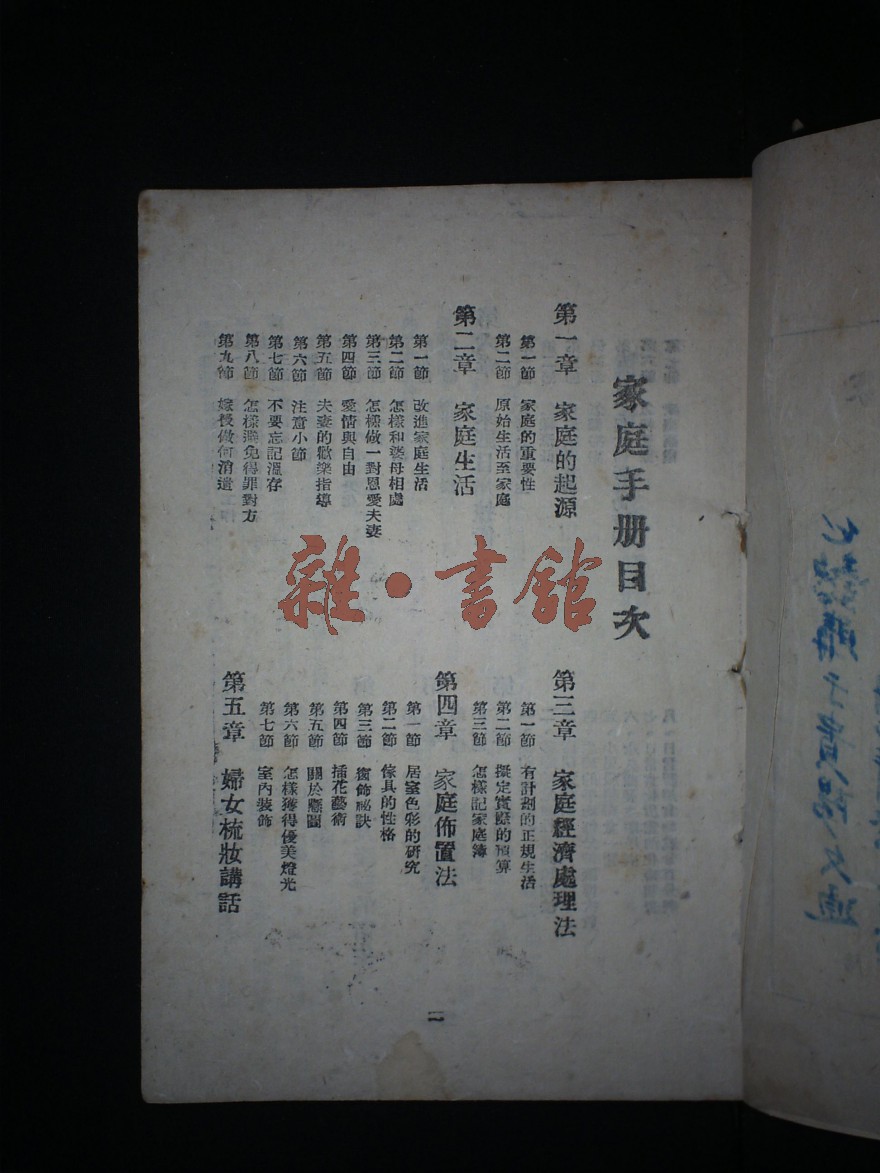 家庭手册目次
第一章 家庭的起源
第一節 家庭的重要性
第二節 原始生活至家庭
第二章 家庭生活
第一節 改進家庭生活
第二節 怎樣和婆母相處
第三節 怎樣做一對恩愛夫妻
第四節 愛情與自由
第五節 夫妻的歡樂指導
第六節 注意小節
第七節 不要忘記溫存
第八節 怎樣避免得罪對方
第九節 嫁後做何消遣
第三章 家庭經濟處理法
第一節 有計劃的正規生活
第二節 擬定實際的預算
第三節 怎樣記家庭簿
第四章 家庭佈置法
第一節 居室色彩的研究
第二節 傢具的性格
第三節 窗飾祕訣
第四節 插花藝術
第五節 關於懸圖
第六節 怎樣獲得優美燈光
第七節 室內裝飾
第五章 婦女梳妝講話
一
雜·書館